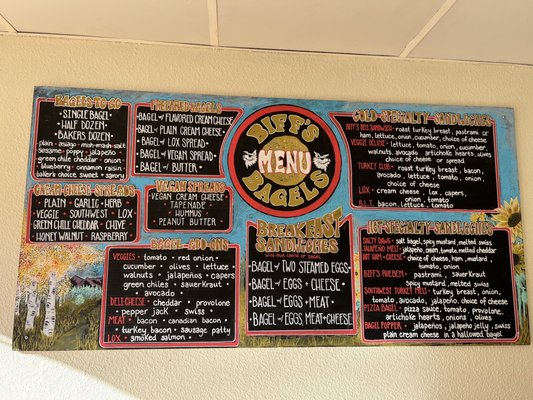 BAGELS TO GO
SINGLE BAGEL
HALF DOZEN
BAKERS DOZEN
plain · asiago · mish-mash · salt
sesame · poppy · jalapeño
green chile cheddar · onion
blueberry · cinnamon raisin
bakers choice sweet · savory
CREAM CHEESE SPREADS
PLAIN · GARLIC · HERB
VEGGIE · SOUTHWEST · LOX
GREEN CHILE CHEDDAR · CHIVE
HONEY WALNUT · RASPBERRY
PREPARED BAGELS
BAGEL w/ FLAVORED CREAM CHEESE
BAGEL w/ PLAIN CREAM CHEESE
BAGEL w/ LOX SPREAD
BAGEL w/ VEGAN SPREAD
BAGEL w/ BUTTER
VEGAN SPREADS
VEGAN CREAM CHEESE
TAPENADE
HUMMUS
PEANUT BUTTER
BAGEL ADD-ONS
VEGGIES · tomato · red onion
cucumber · olives · lettuce
walnuts · jalapeños · capers
green chiles · sauerkraut
avocado
DELI CHEESE · cheddar · provolone
pepper jack · swiss
MEAT · bacon · canadian bacon
turkey bacon · sausage patty
LOX · smoked salmon
BIFF'S
MENU
BAGELS
BREAKFAST
SANDWICHES
BAGEL w/ TWO STEAMED EGGS
BAGEL w/ EGGS + CHEESE
BAGEL w/ EGGS + MEAT
BAGEL w/ EGGS, MEAT + CHEESE
COLD SPECIALTY SANDWICHES
BIFF'S DELI SANDWICH · roast turkey breast, pastrami or
ham, lettuce, onion, cucumber, choice of cheese
VEGGIE DELITE · lettuce, tomato, onion, cucumber
walnuts, avocado, artichoke hearts, olives
choice of cheese or spread
TURKEY CLUB · roast turkey breast, bacon,
avocado, lettuce, tomato, onion
choice of cheese
LOX · cream cheese, lox, capers,
onion, tomato
B.L.T. bacon, lettuce, tomato
HOT SPECIALTY SANDWICHES
SALTY DAWG · salt bagel, spicy mustard, melted swiss
JALAPEÑO MELT · jalapeño, onion, tomato, melted cheddar
HOT HAM + CHEESE · choice of cheese, ham, mustard
tomato, onion
BIFF'S RUEBEN · pastrami, sauerkraut
spicy mustard, melted swiss
SOUTHWEST TURKEY MELT · turkey breast, onion,
tomato, avocado, jalapeño, choice of cheese
PIZZA BAGEL · pizza sauce, tomato, provolone,
artichoke hearts, onions, olives
BAGEL POPPER · jalapeños, jalapeño jelly, swiss
plain cream cheese in a hallowed bagel